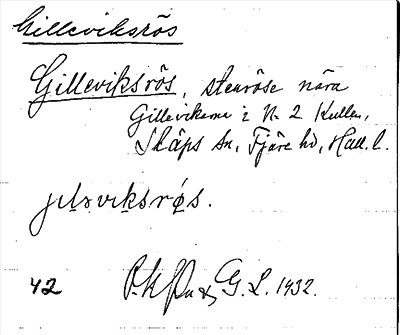 Gilleviksrös
Gilleviksrös, stenröse nära
Gillevikarna i N. 2 Kullen,
Släps sn, Fjäre hd, Hall. l.
jıḷəvıksrø̨s.
42 G. L. 1932.